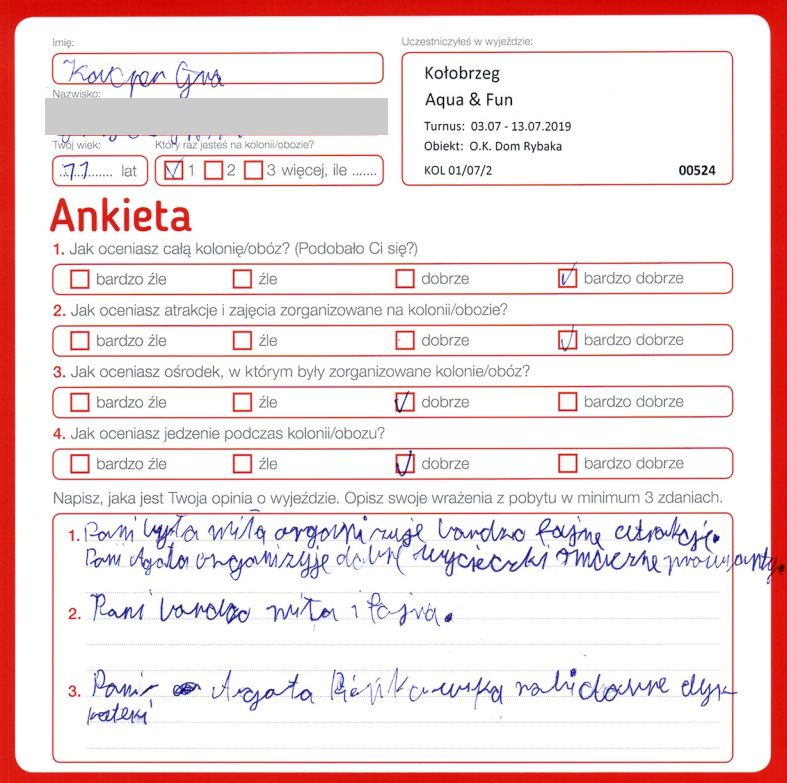 Imię:
Kacper
Nazwisko:
Twój wiek:
Który raz jesteś na kolonii/obozie?
11 lat
1 2 3 więcej, ile .......
Uczestniczyłeś w wyjeździe:
Kołobrzeg
Aqua & Fun
Turnus: 03.07 - 13.07.2019
Obiekt: O.K. Dom Rybaka
KOL 01/07/2 00524
Ankieta
1. Jak oceniasz całą kolonię/obóz? (Podobało Ci się?)
bardzo źle źle dobrze bardzo dobrze
2. Jak oceniasz atrakcje i zajęcia zorganizowane na kolonii/obozie?
bardzo źle źle dobrze bardzo dobrze
3. Jak oceniasz ośrodek, w którym były zorganizowane kolonie/obóz?
bardzo źle źle dobrze bardzo dobrze
4. Jak oceniasz jedzenie podczas kolonii/obozu?
bardzo źle źle dobrze bardzo dobrze
Napisz, jaka jest Twoja opinia o wyjeździe. Opisz swoje wrażenia z pobytu w minimum 3 zdaniach.
1. Pani była miła organizuje bardzo fajne atrakcje.
Pani Agata organizyję wycieczki smaczne prowianty.
2. Pani bardzo miła i fajna.
3. Pani Agata robi dys
koteki